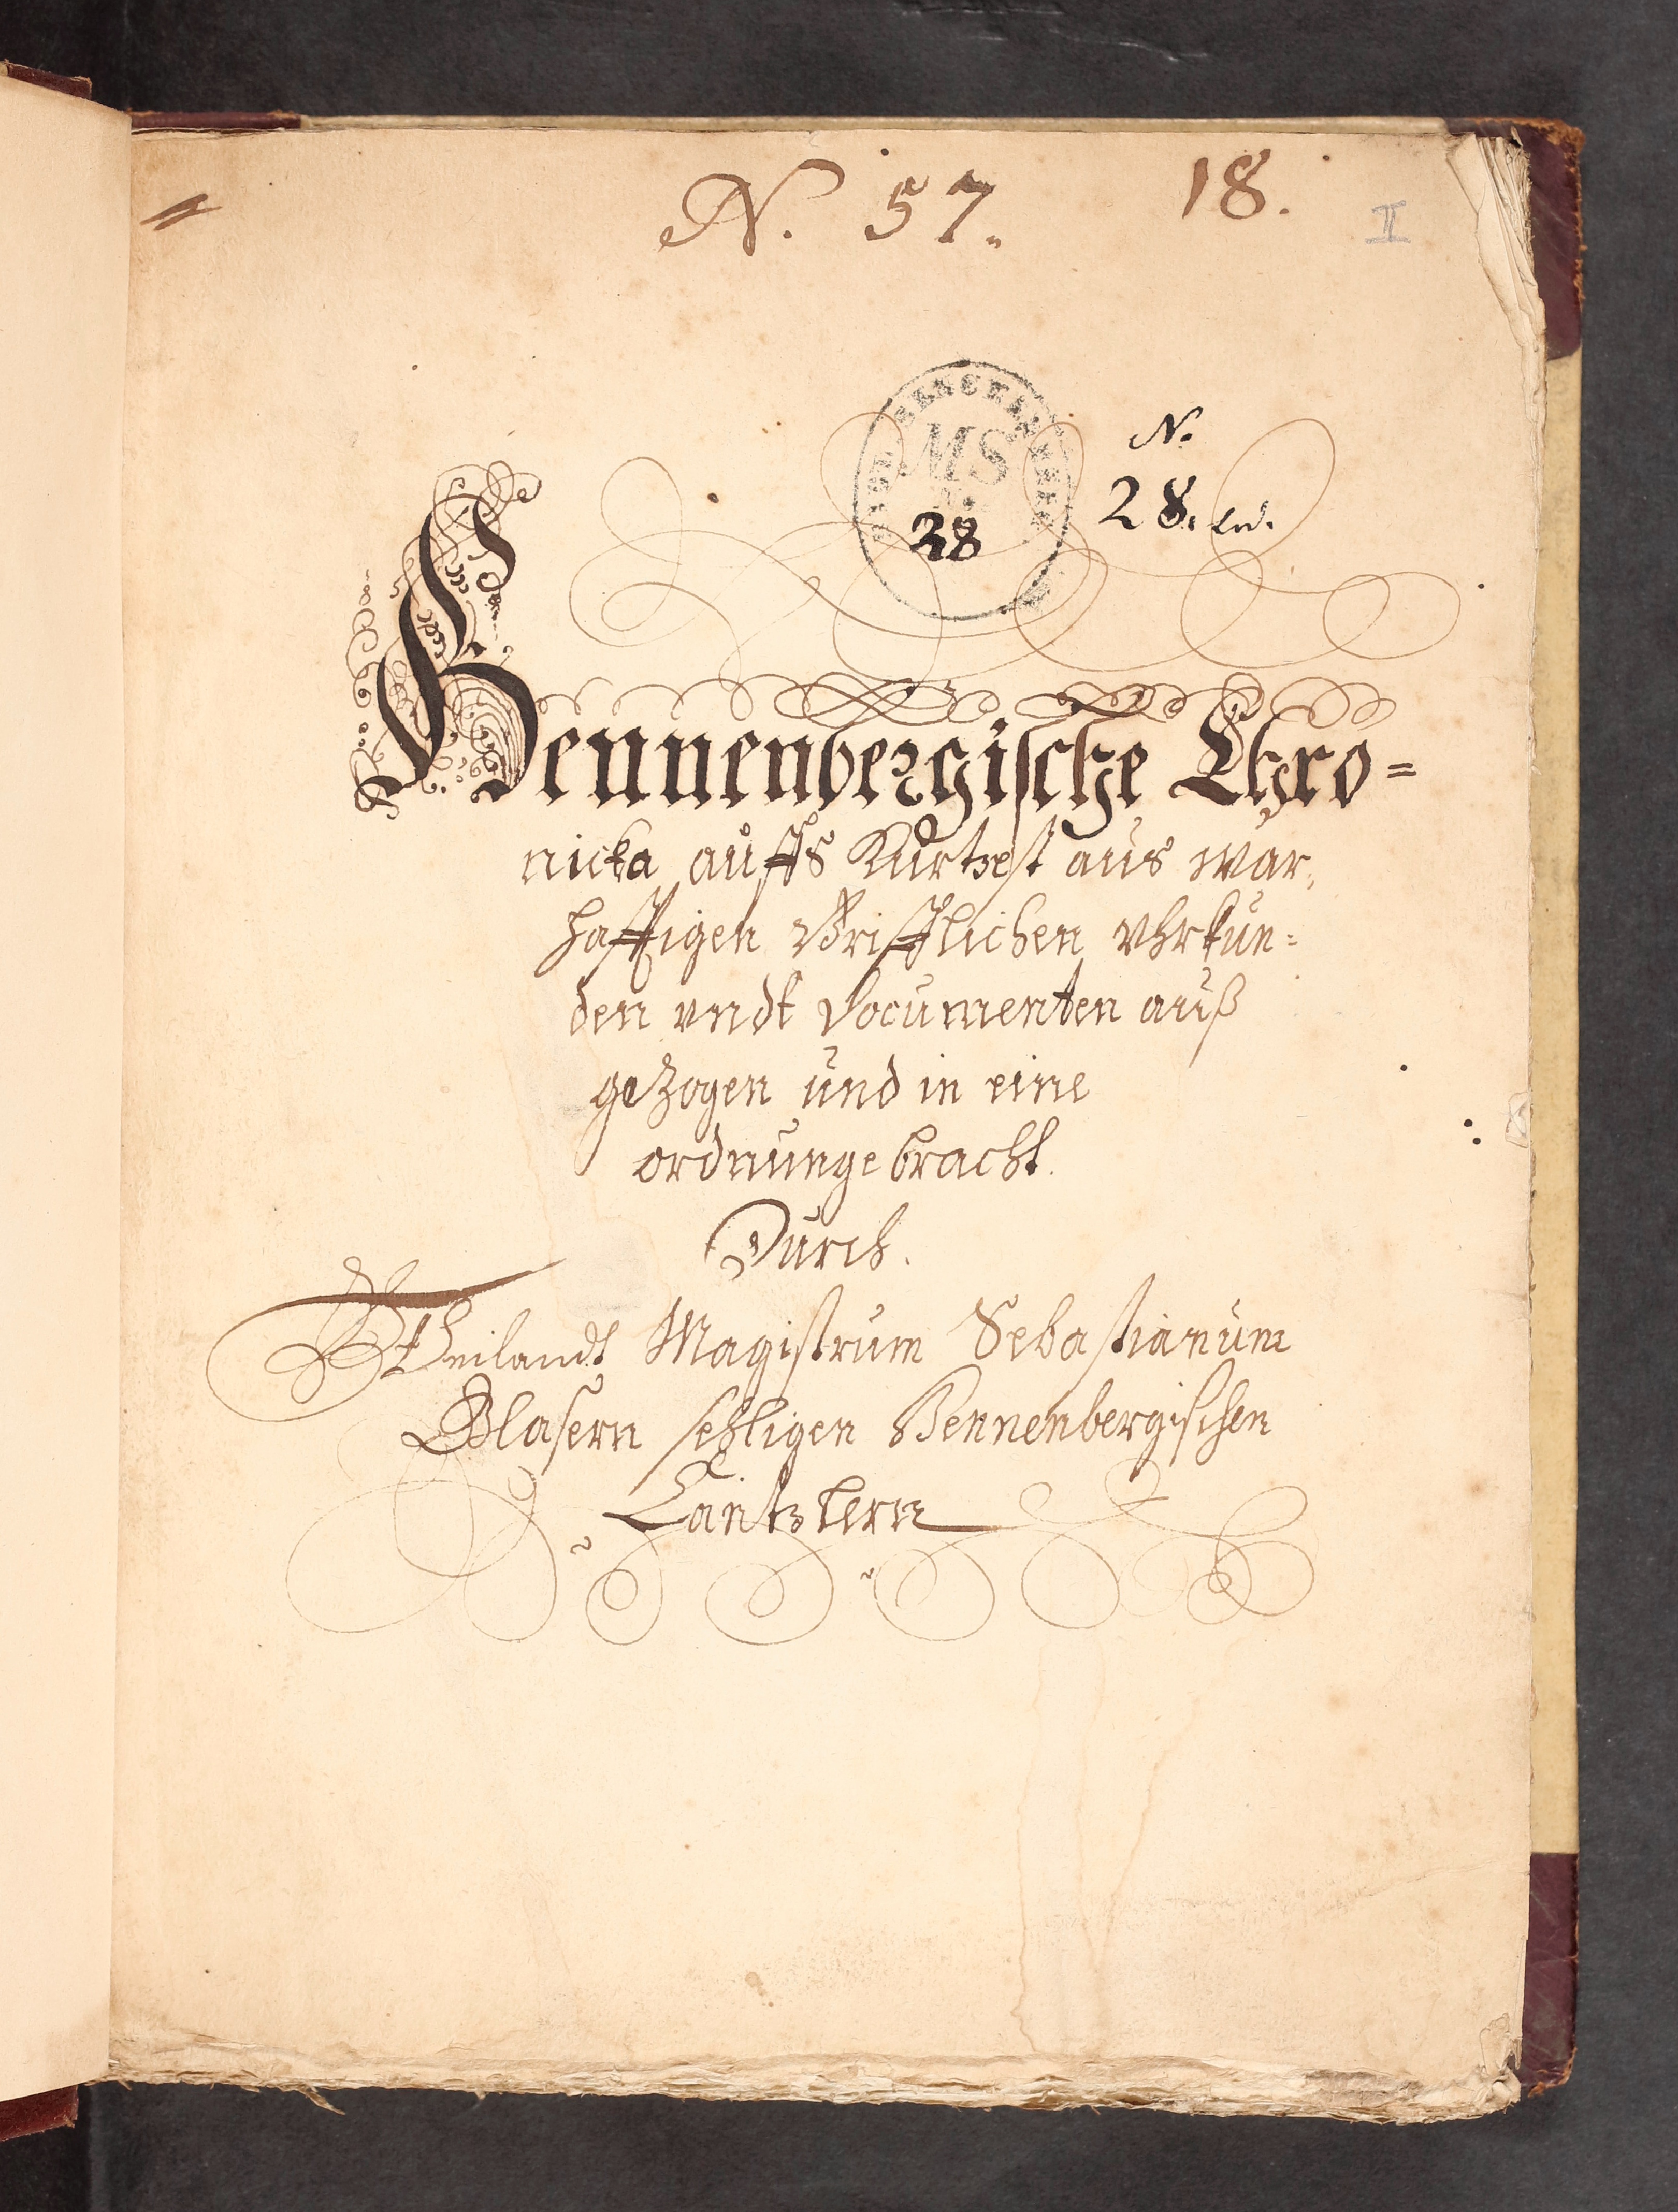 N. 57. 18. II
MS
N.
38
28. 
Hennenbergische Chro=
nicka auffs Kürtzest aus war,
hafftigen Brifflichen Vhrkun=
den vndt Documenten auß
gezogen und in eine
ordnunge bracht.
Durch.
Weilandt Magistrum Sebastianum
Glasern sehligen Hennenbergischen
Cantzlern